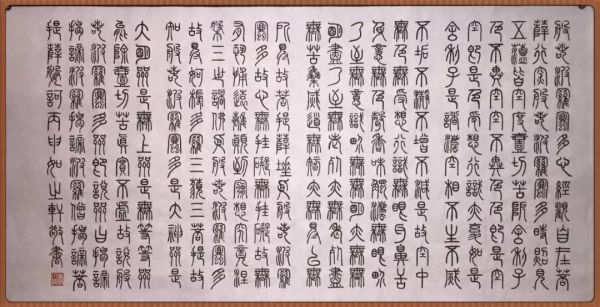 般若波羅蜜多心經觀自在菩
薩行深般若波羅蜜多時照見
五蘊皆空度一切苦厄舍利子
色不異空空不異色色即是空
空即是色受想行識亦復如是
舍利子是諸法空相不生不滅
不垢不淨不增不減是故空中
無色無受想行識無眼耳鼻舌
身意無色聲香味觸法無眼界
乃至無意識界無無明亦無無
明盡乃至無老死亦無老死盡
無苦集滅道無智亦無得以無
所得故菩提薩埵依般若波羅
蜜多故心無罣礙無罣礙故無
有恐怖遠離顛倒夢想究竟涅
槃三世諸佛依般若波羅蜜多
故得阿耨多羅三藐三菩提故
知般若波羅蜜多是大神咒是
大明咒是無上咒是無等等咒
能除一切苦真實不虛故說般
若波羅蜜多咒即說咒曰揭諦
揭諦波羅揭諦波羅僧揭諦菩
提薩婆訶丙申如之軒敬書